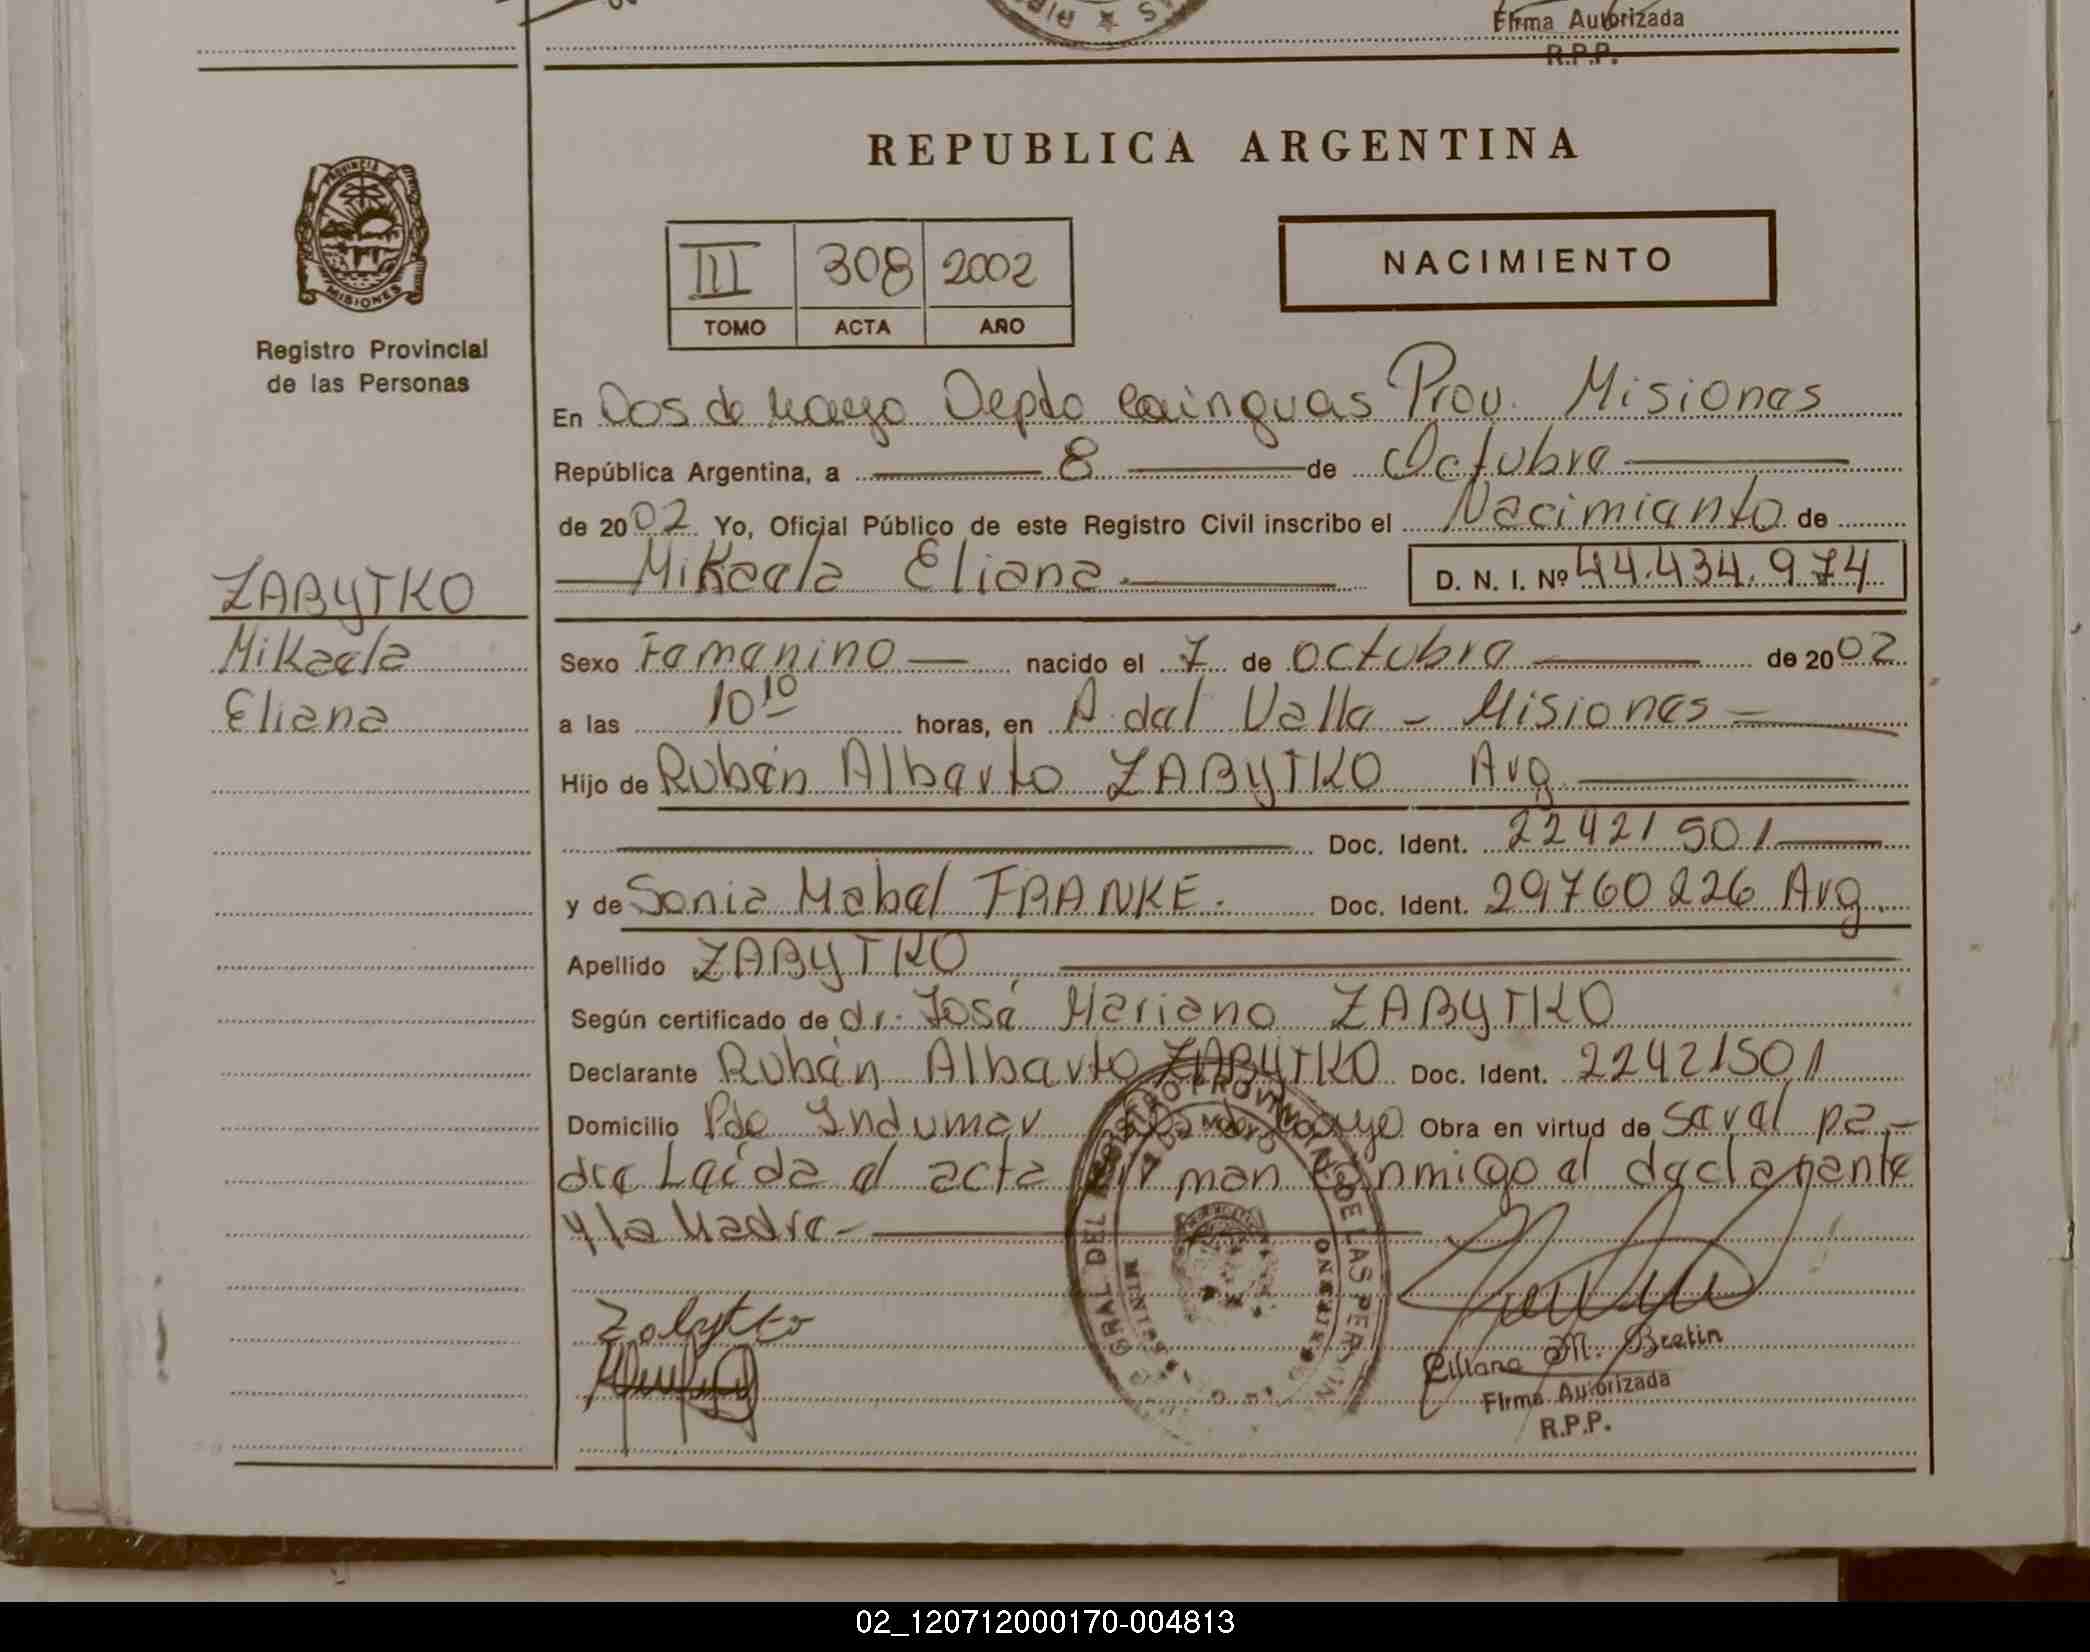 Firma Autorizada
R.P.P.
REPUBLICA ARGENTINA
PROVINCIA
MISIONES
III 308 2002
TOMO ACTA AÑO
NACIMIENTO
Registro Provincial
de las Personas
En Dos de Mayo Depto Cainguas Prov. Misiones
República Argentina, a 8 de Octubre
de 2002 Yo, Oficial Público de este Registro Civil inscribo el Nacimiento de
Mikaela Eliana D. N. I. Nº 44.434.974
ZABYTKO
Mikaela
Eliana
Sexo Femenino nacido el 7 de octubre de 2002
a las 10 10 horas, en A. del Valle - Misiones
Hijo de Rubén Alberto ZABYTKO Arg
Doc. Ident. 22421501
y de Sonia Mabel FRANKE. Doc. Ident. 29760226 Arg.
Apellido ZABYTKO
Según certificado de dr. José Mariano ZABYTKO
Declarante Rubén Alberto ZABYTKO Doc. Ident. 22421501
Domicilio Pje Indumar Dos de Mayo Obra en virtud de ser el pa-
dre Leída el acta firman conmigo el declarante
y la Madre
Zabytko
Liliana M. Bretin
Firma Autorizada
R.P.P.
02_120712000170-004813